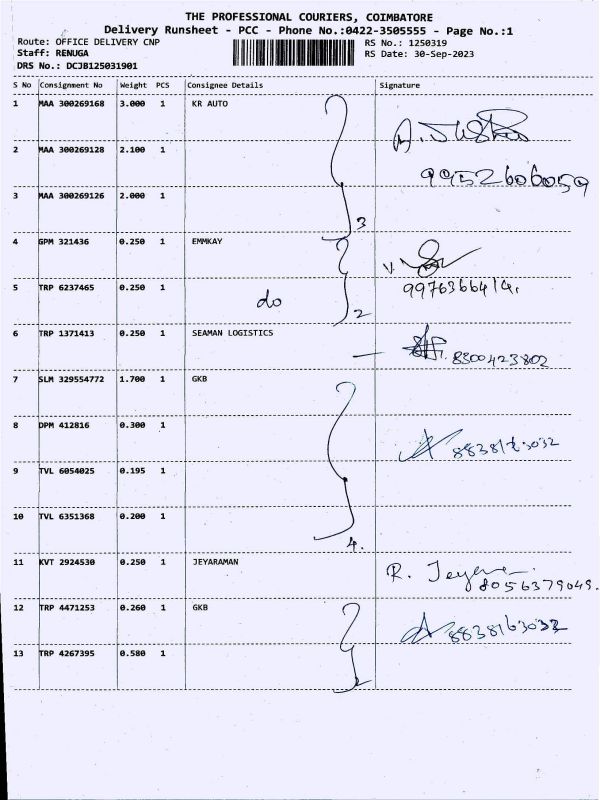 THE PROFESSIONAL COURIERS, COIMBATORE
Delivery Runsheet - PCC - Phone No.:0422-3505555 - Page No.:1
Route: OFFICE DELIVERY CNP RS No.: 1250319
Staff: RENUGA RS Date: 30-Sep-2023
DRS No.: DCJB125031901
S No Consignment No Weight PCS Consignee Details Signature
1 MAA 300269168 3.000 1 KR AUTO
2 MAA 300269128 2.100 1
9952606059
3 MAA 300269126 2.000 1
3
4 GPM 321436 0.250 1 EMMKAY
5 TRP 6237465 0.250 1 9976366414.
do
2
6 TRP 1371413 0.250 1 SEAMAN LOGISTICS
8300423802
7 SLM 329554772 1.700 1 GKB
8 DPM 412816 0.300 1
9 TVL 6054025 0.195 1
10 TVL 6351368 0.200 1
4.
11 KVT 2924530 0.250 1 JEYARAMAN
R.
8056379049.
12 TRP 4471253 0.260 1 GKB
8838163032
13 TRP 4267395 0.580 1
2